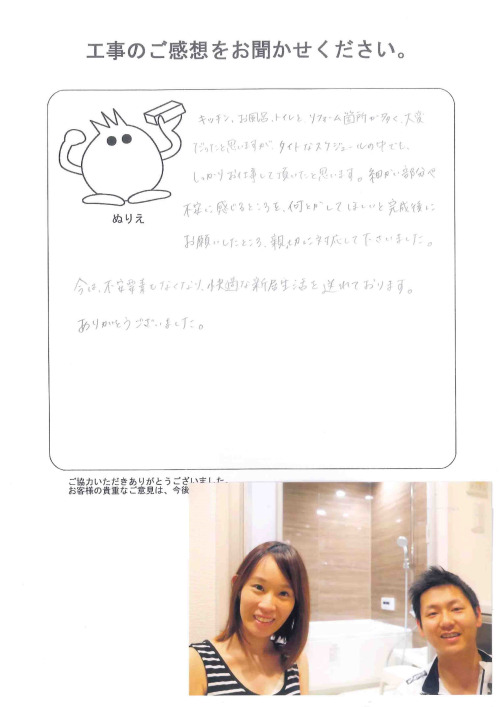 工事のご感想をお聞かせください。
キッチン、お風呂、トイレと リフォーム箇所が多く、大変
だったと思いますが、タイトなスケジュールの中でも、
しっかりお仕事して頂いたと思います。細かい部分や
不安に感じるところを、何とかしてほしいと完成後に
お願いしたところ、親切に対応して下さいました。
ぬりえ
今は、不安要素もなくなり、快適な新居生活を送れております。
ありがとうございました。
ご協力いただきありがとうございました。
お客様の貴重なご意見は、今後